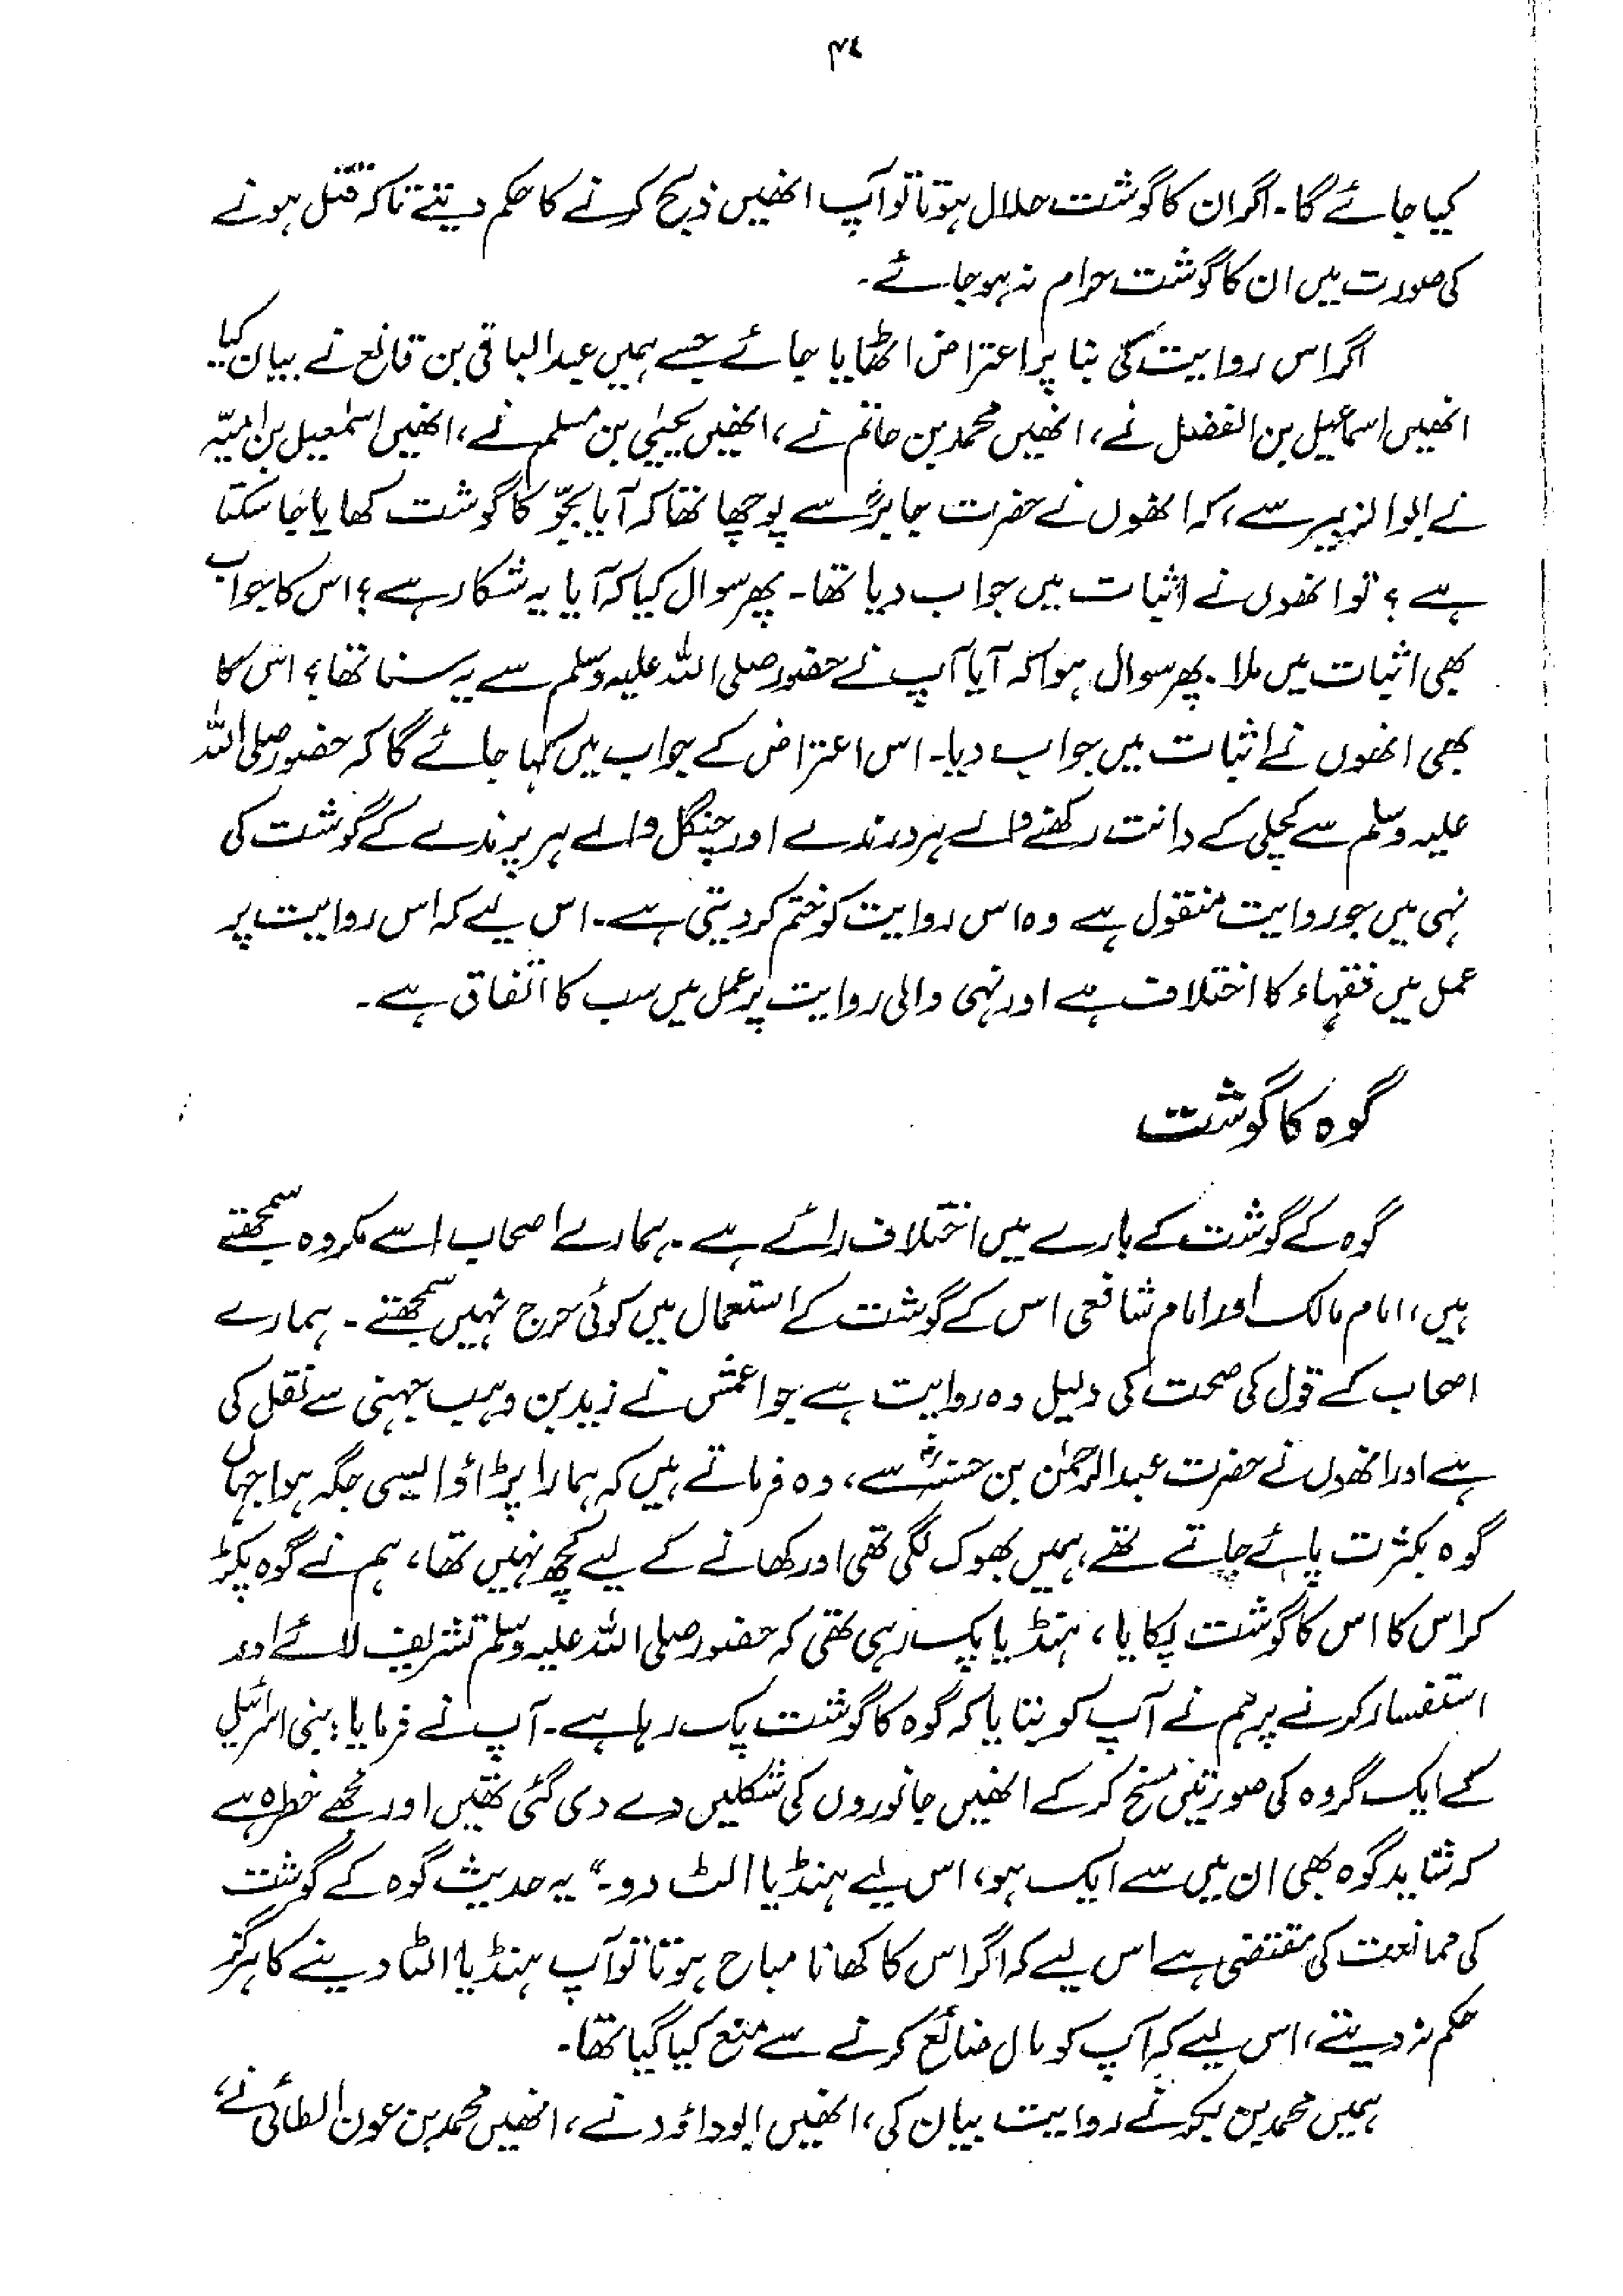 ۳۴
کیا جائے گا۔ اگر ان کا گوشت حلال ہوتا تو آپ انھیں ذبح کرنے کا حکم دیتے تاکہ قتل ہونے
کی صورت میں ان کا گوشت حرام نہ ہو جائے۔
اگر اس روایت کی بنا پر اعتراض اٹھایا جائے جسے ہمیں عبدالباقی بن قانع نے بیان کیا
انھیں اسماعیل بن الفضل نے، انھیں محمد بن حاتم نے، انھیں یحییٰ بن مسلم نے، انھیں اسمٰعیل بن امیّہ
نے ابوالزبیر سے، کہ انھوں نے حضرت جابرؓ سے پوچھا تھا کہ آیا بجّو کا گوشت کھایا جا سکتا
ہے؟ تو انھوں نے اثبات میں جواب دیا تھا۔ پھر سوال کیا کہ آیا یہ شکار ہے؟ اس کا جواب
بھی اثبات میں ملا۔ پھر سوال ہوا کہ آیا آپ نے حضور صلی اللہ علیہ وسلم سے یہ سنا تھا؟ اس کا
بھی انھوں نے اثبات میں جواب دیا۔ اس اعتراض کے جواب میں کہا جائے گا کہ حضور صلی اللہ
علیہ وسلم سے کچلی کے دانت رکھنے والے ہر درندے اور چنگل والے ہر پرندے کے گوشت کی
نہی میں جو روایت منقول ہے وہ اس روایت کو ختم کر دیتی ہے۔ اس لیے کہ اس روایت پر
عمل میں فقہاء کا اختلاف ہے اور نہی والی روایت پر عمل میں سب کا اتفاق ہے۔
گوہ کا گوشت
گوہ کے گوشت کے بارے میں اختلاف رائے ہے۔ ہمارے اصحاب اسے مکروہ سمجھتے
ہیں، امام مالک اور امام شافعی اس کے گوشت کے استعمال میں کوئی حرج نہیں سمجھتے۔ ہمارے
اصحاب کے قول کی صحت کی دلیل وہ روایت ہے جو اعمش نے زید بن وہب جہنی سے نقل کی
ہے اور انھوں نے حضرت عبدالرحمٰن بن حسنہؓ سے، وہ فرماتے ہیں کہ ہمارا پڑاؤ ایسی جگہ ہوا جہاں
گوہ بکثرت پائے جاتے تھے، ہمیں بھوک لگی تھی اور کھانے کے لیے کچھ نہیں تھا، ہم نے گوہ پکڑ
کر اس کا اس کا گوشت پکایا، ہنڈیا پک رہی تھی کہ حضور صلی اللہ علیہ وسلم تشریف لائے اور
استفسار کرنے پر ہم نے آپ کو بتایا کہ گوہ کا گوشت پک رہا ہے۔ آپ نے فرمایا: بنی اسرائیل
کے ایک گروہ کی صورتیں مسخ کر کے انھیں جانوروں کی شکلیں دے دی گئی تھیں اور مجھے خطرہ ہے
کہ شاید گوہ بھی ان میں سے ایک ہو، اس لیے ہنڈیا الٹ دو۔" یہ حدیث گوہ کے گوشت
کی ممانعت کی مقتضی ہے اس لیے کہ اگر اس کا کھانا مباح ہوتا تو آپ ہنڈیا الٹا دینے کا ہرگز
حکم نہ دیتے، اس لیے کہ آپ کو مال ضائع کرنے سے منع کیا گیا تھا۔
ہمیں محمد بن بکر نے روایت بیان کی، انھیں ابوداؤد نے، انھیں محمد بن عون الطائی نے،